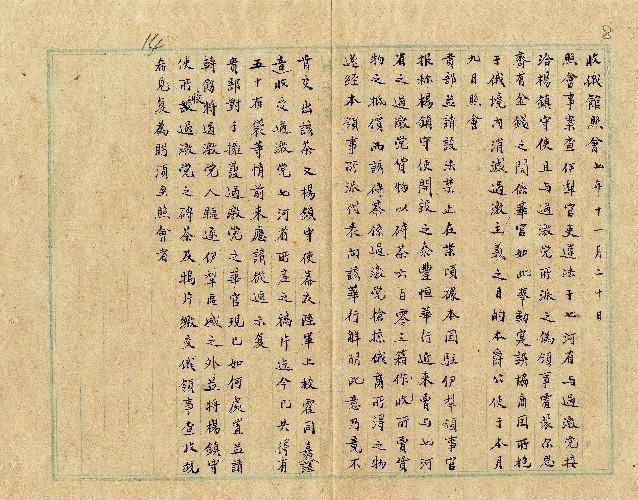 8
14
收俄館照會七年十一月二十日
照會事案查伊犁官吏違法于七河省与過激党接
洽楊鎮守使且与過激党所派之偽領事霍裴尔思
秦有金錢之関係華官如此舉動寔誤協商国所抱
于俄境內消滅過激主義之目的本爵公使于本月
九日照會
貴部並請設法禁止在案頃據本国駐伊犁領事官
报称楊鎮守使開設之泰豐恒華行近来賣与七河
省之過激党貨物以磚茶六百零三箱作收所賣貨
物之抵償而該磚茶係過激党槍掠俄商所得之物
逆经本領事所派代表向該華行解明此意乃竟不
肯交出該茶又楊鎮守使幕友陸軍上校霍同嘉證
意收受過激党七河省所産之鴉片迄今已共得有
五十布袋等情前来應請從速示复
貴部對于擁護過激党之華官現已如何處置並請
轉飭将過激党人驅逐伊犁區域之外並将楊鎮守
使所收過激党之磚茶及鴉片繳交俄領事查收統
希見复為盼須至照會者